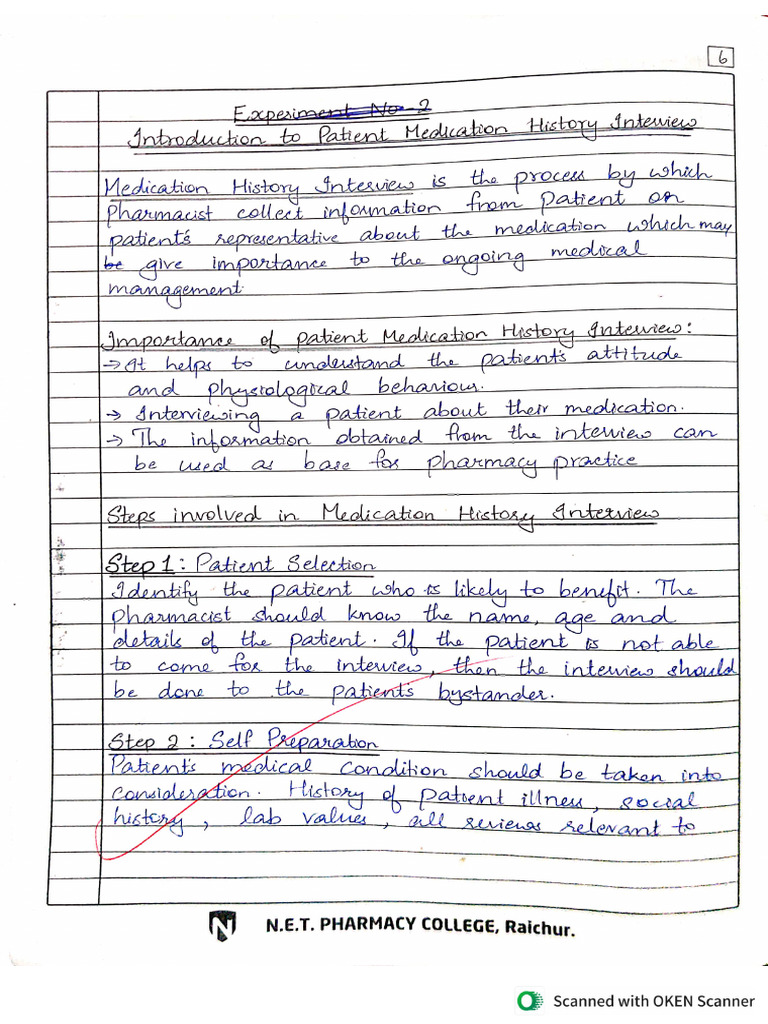 6
Experiment No-2
Introduction to Patient Medication History Interview
Medication History Interview is the process by which
pharmacist collect information from patient or
patient's representative about the medication which may
be give importance to the ongoing medical
management.
Importance of patient Medication History Interview:
→ It helps to understand the patient's attitude
and physiological behaviour.
→ Interviewing a patient about their medication.
→ The information obtained from the interview can
be used as base for pharmacy practice
Steps involved in Medication History Interview
Step 1: Patient Selection
Identify the patient who is likely to benefit. The
pharmacist should know the name, age and
details of the patient. If the patient is not able
to come for the interview, then the interview should
be done to the patient's bystander.
Step 2: Self Preparation
Patient's medical condition should be taken into
consideration. History of patient illness, social
history, lab values, all reviews relevant to
N.E.T. PHARMACY COLLEGE, Raichur.
Scanned with OKEN Scanner